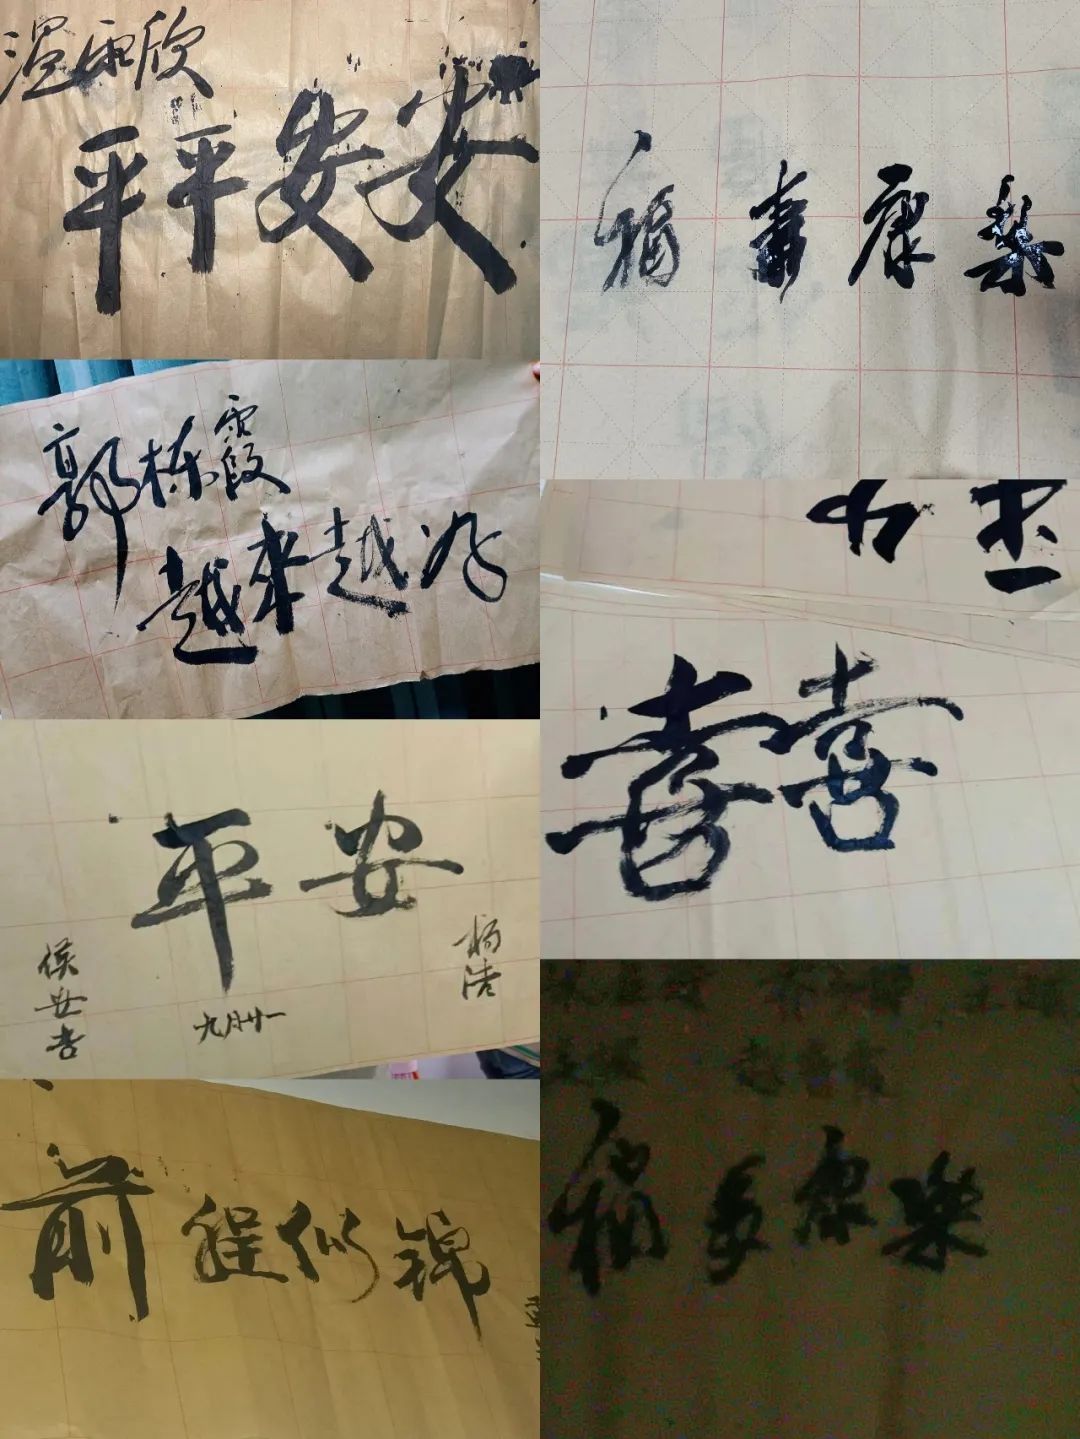 温雨欣
平平安安
福寿康樂
郭栋霞
越来越好
喜喜
平安
侯安杏
九月廿一
杨浩
前程似锦
福寿康樂